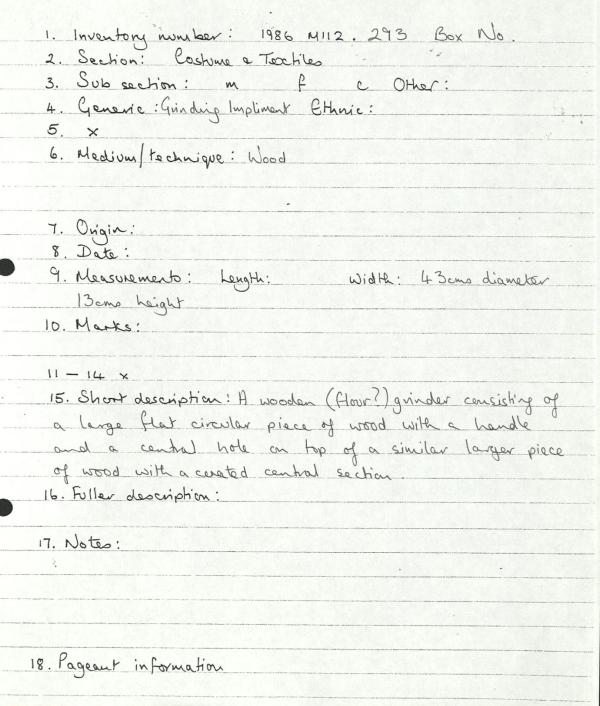 1. Inventory number: 1986 M112. 293 Box No.
2. Section: Costume & Textiles
3. Sub section: m f c Other:
4. Generic: Grinding Impliment Ethnic:
5. x
6. Medium/technique: Wood
7. Origin:
8. Date:
9. Measurements: Length: Width: 43cms diameter
13cms height
10. Marks:
11 – 14 x
15. Short description: A wooden (flour?) grinder consisting of
a large flat circular piece of wood with a handle
and a central hole on top of a similar larger piece
of wood with a cerated central section.
16. Fuller description:
17. Notes:
18. Pageant information